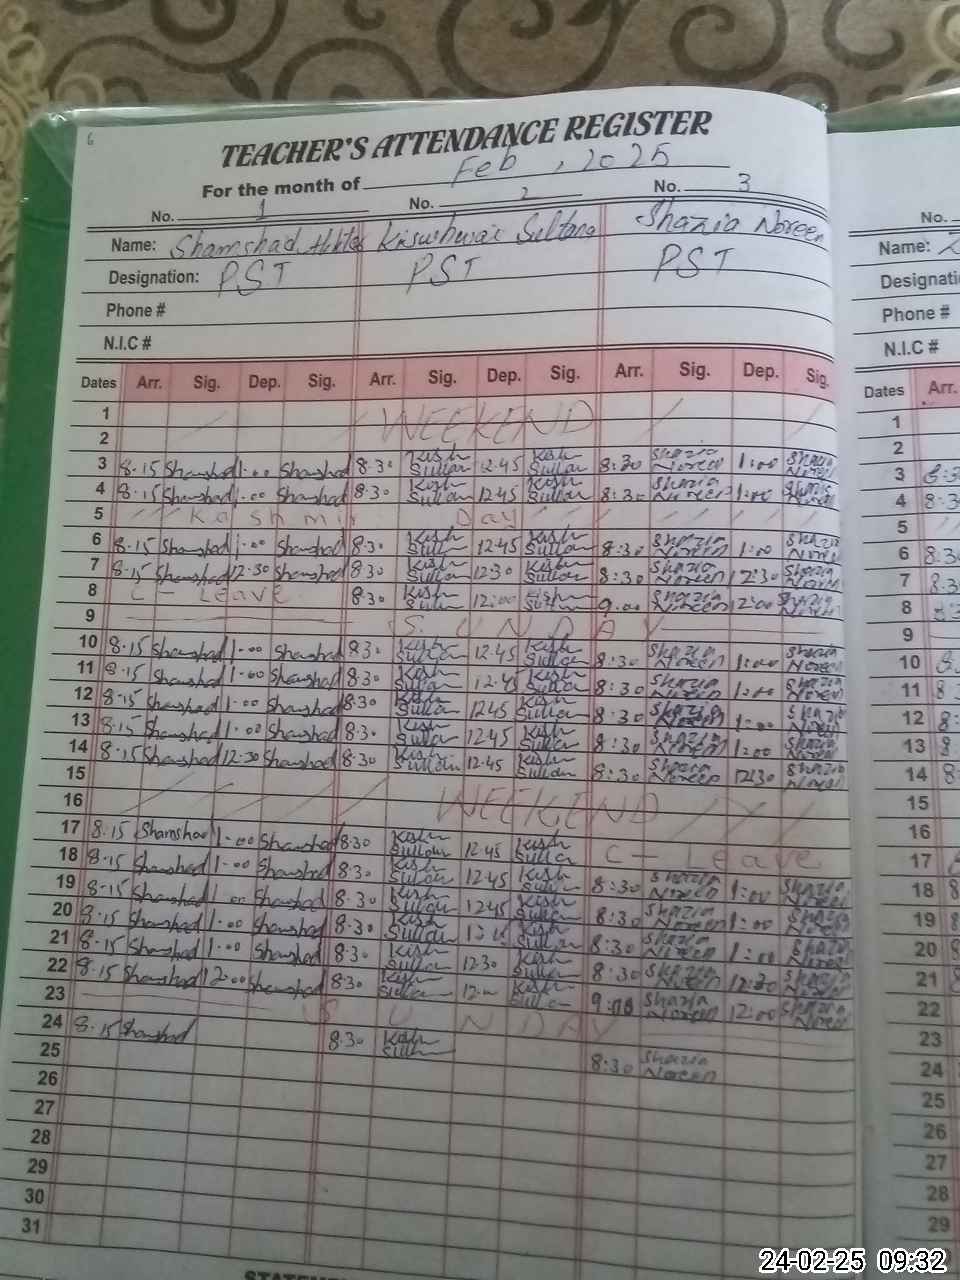 6
TEACHER'S ATTENDANCE REGISTER
For the month of Feb, 2025
No. 1 No. 2 No. 3
Name: Shamshad Akhter Kisushwar Sultana Shazia Noreen
Designation: PST PST PST
Phone #
N.I.C #
Dates Arr. Sig. Dep. Sig. Arr. Sig. Dep. Sig. Arr. Sig. Dep. Sig.
1 WEEKEND
2
3 8.15 Shamshad 1.00 Shamshad 8.30 Kish Sultan 12.45 Kish Sultan 8:30 Shazia Noreen 1:00 Shazia Noreen
4 8.15 Shamshad 1.00 Shamshad 8.30 Kish Sultan 12.45 Kish Sultan 8:30 Shazia Noreen 1:00 Shazia Noreen
5 Kashmir Day
6 8.15 Shamshad 1.00 Shamshad 8.30 Kish Sultan 12.45 Kish Sultan 8:30 Shazia Noreen 1:00 Shazia Noreen
7 8.15 Shamshad 12.30 Shamshad 8.30 Kish Sultan 12.30 Kish Sultan 8:30 Shazia Noreen 12:30 Shazia Noreen
8 C - Leave 8.30 Kish Sultan 12:00 Kish Sultan 9.00 Shazia Noreen 12:00 Shazia Noreen
9 SUNDAY
10 8.15 Shamshad 1.00 Shamshad 8.30 Kish Sultan 12.45 Kish Sultan 8:30 Shazia Noreen 1:00 Shazia Noreen
11 8.15 Shamshad 1.00 Shamshad 8.30 Kish Sultan 12.45 Kish Sultan 8:30 Shazia Noreen 1:00 Shazia Noreen
12 8.15 Shamshad 1.00 Shamshad 8.30 Kish Sultan 12.45 Kish Sultan 8:30 Shazia Noreen 1:00 Shazia Noreen
13 8.15 Shamshad 1.00 Shamshad 8.30 Kish Sultan 12.45 Kish Sultan 8:30 Shazia Noreen 1:00 Shazia Noreen
14 8.15 Shamshad 12.30 Shamshad 8.30 Kish Sultan 12.45 Kish Sultan 8:30 Shazia Noreen 12:30 Shazia Noreen
15
16 WEEKEND
17 8.15 Shamshad 1.00 Shamshad 8.30 Kish Sultan 12.45 Kish Sultan C - Leave
18 8.15 Shamshad 1.00 Shamshad 8.30 Kish Sultan 12.45 Kish Sultan 8:30 Shazia Noreen 1:00 Shazia Noreen
19 8.15 Shamshad 1.00 Shamshad 8.30 Kish Sultan 12.45 Kish Sultan 8:30 Shazia Noreen 1:00 Shazia Noreen
20 8.15 Shamshad 1.00 Shamshad 8.30 Kish Sultan Kish Sultan 8:30 Shazia Noreen 1:00 Shazia Noreen
21 8.15 Shamshad 1.00 Shamshad 8.30 Kish Sultan 12.30 Kish Sultan 8:30 Shazia Noreen 12:30 Shazia Noreen
22 8.15 Shamshad 12.00 Shamshad 8.30 Kish Sultan 12.00 Kish Sultan 9:00 Shazia Noreen 12:00 Shazia Noreen
23 SUNDAY
24 8.15 Shamshad 8.30 Kish Sultan 8:30 Shazia Noreen
25
26
27
28
29
30
31
No.
Name:
Designati
Phone #
N.I.C #
Dates Arr.
1
2
3 8:3
4 8:3
5
6 8:3
7 8:3
8
9
10
11
12
13
14
15
16
17
18
19
20
21
22
23
24
25
26
27
28
29
24-02-25 09:32